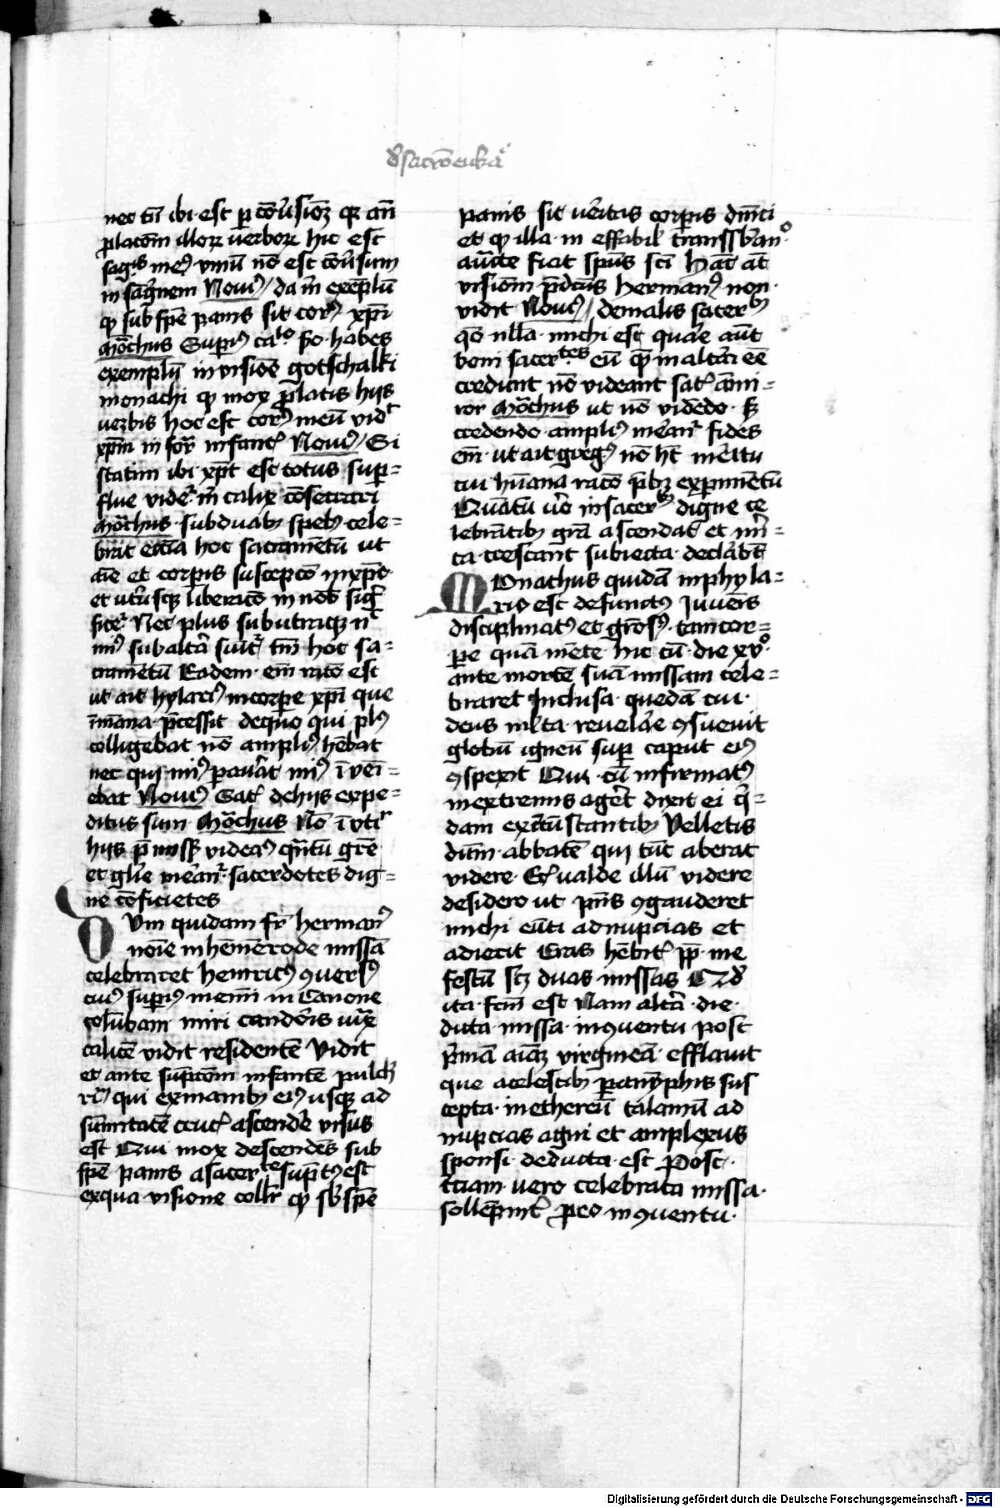 d' sacro euka
nec tn̄ ibi est ꝑ cōu̅sionē qꝛ an̄
ꝓlacōm illoꝝ verboꝝ hic est
sag̅is meꝰ vinū nō est cōu̅sum
in sāgnem Nouiꝰ / da m̄ exēplū
ꝙ sub spē panis sit corꝰ xp̄i
Mōchus Supiꝰ caᵒ habes
exemplū in visiōe gotschalki
monachi ꝙ mox ꝓlatis hijs
verbis hoc est corꝰ meū vidᵗ
xp̄m in for̄ infantꝭ Nouiꝰ / Si
statim ibi xp̄c est totus supͬ=
flue videt̉ m̄ calix cōsecrari
Mōchus subduabꝫ spēbꝫ cele=
brat ecc̄ia hoc sacramētū ut
aīe et corpis suscepcō in xp̄o
et utͥusqꝫ liberacō in nob̄ sig̅
ficet̉ Nec plus subutraqꝫ nᶜ
miꝰ subaltͣa suīt̉ tm̄ hoc sa=
cramētū Eadem em̄ racō est
ut ait hylariꝰ incorpe xp̄i que
ī māna p̄cessit dequo qui plꝰ
colligebat nō ampliꝰ hēbat
nec qui miꝰ pauāt miꝰ īveī=
ebat Nouiꝰ Satꝭ dehijs expe=
ditus sum Mōchus Nō īutiͬ
hijs p̄missꝭ videaꝰ qn̄tū grē
et glīe meān̄t sacerdotes dig=
ne cōficiētes
Dum quidam fr̄ hermanꝰ
noīe in hēmērode missā
celebraret henricꝰ ꝯversꝰ
cuiꝰ supiꝰ memī in Canone
colūbam miri candōis iux̄
calicē vidit residentē Vidit
et ante sūpcōm infantē pulchͬ
rīꝰ qui exmanibꝫ eiꝰ usqꝫ ad
sūmitatē crucꝭ ascendē visus
est Qui mox descendēs sub
spē panis asacerᵗᵉ sūptꝰ est
exqua visione collr̄ ꝙ sb̄ spē
panis sit vītas corpis dn̄ici
et ꝙ illa in effabilꝭ trānssb̄anᵒ
auctͤe fiat sp̄us sc̄i Hāc at̄
visiōm p̄dcūs hermanꝰ non
vidit Nouiꝰ / demalis sacerᵇꝫ
qō nlla michi est quare aūt
boni sacerᵗᵉˢ eū quē ī altāi eē
credunt nō videant satꝭ āmi=
ror Mōchus ut nō vidēdo sꝫ
credendo ampliꝰ meānt̉ fides
em̄ ut ait gregꝰ nō ht̄ m̄eritū
cui hūana racō p̄bꝫ exprimētū
Quātū vͦo in sacerᵇꝫ digne ce
lebrātibꝫ grā ascendat et mi̅=
ta crescant subiecta declābt̄
Monachus quidā in phyla=
rio est defunctꝰ Iuveīs
disciplinatꝰ et grōsꝰ tam cor=
pe quā mēte hic cū die xvᵒ
ante mortē suā missam cele=
braret Inclusa quedā cui
deus ml̄ta revelare ꝯsuevit
globū igneū sup̄ caput eiꝰ
ꝯspexit Qui cū infirmatꝰ
in extremis agēt dixit ei qͥ=
dam excūstantibꝫ Velletis
dūm abbatē qui tūc aberat
videre Et ualde illū videre
desidero ut pn̄s ꝯgauderet
michi eūti ad nupcias et
adiecit Cras hēbitꝭ pp̄ me
festū scꝫ duas missas Qd̄
ita fcm̄ est Nam altͣa die
dicta missa inꝯventu post
pͥmā aīaꝫ virgineā efflavit
que acelestibꝫ paranȳphis sus
cepta inethereū talamū ad
nupcias agni et amplexus
sponsi deducta est Post
tͨiam vero celebrata missa
sollēpnitꝭ ꝓeo inꝯventu
Digitalisierung gefördert durch die Deutsche Forschungsgemeinschaft - DFG